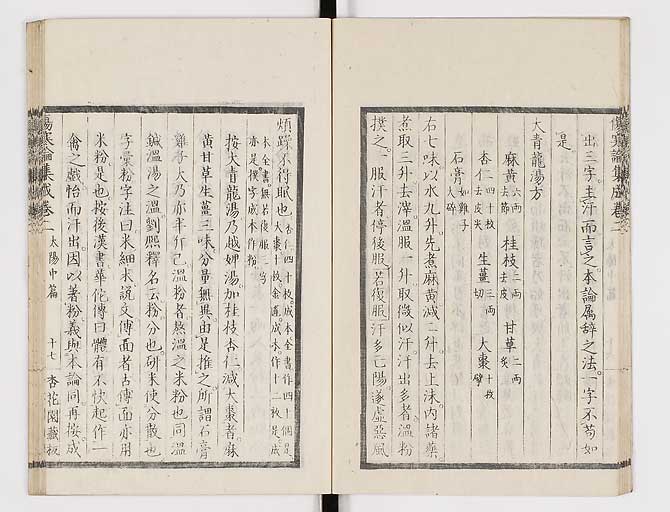 出三字。主汗而言之。本論屬辭之法。一字不苟如
是
大青龍湯方
麻黄六兩去節 桂枝二兩去皮 甘草二兩炙
杏仁四十枚去皮尖 生薑三兩切 大棗十枚擘
石膏如雞子大碎
右七味以水九升。先煮麻黄。減二升。去上沫。内諸藥。
煮取三升。去滓。温服一升。取微似汗。汗出多者。温粉
撲之。一服汗者。停後服。若復服。汗多亡陽。遂虚。惡風
煩躁不得眠也。杏仁四十枚。成本全書作四十個是。大棗十枚金匱。成本作十二枚是。成本全書無若復服三字。亦是。撲字成本作粉。
按大青龍湯乃越婢湯。加桂枝杏仁。減大棗者。麻
黄甘草生薑三味。分量無異。由是推之。所謂石膏
雞子大乃亦半斤已。温粉者熬温之米粉也。同温
鍼温湯之温。劉熙釋名云。粉分也。研米使分散也
字彙粉字注曰。米細末。説文傅面者。古傅面亦用
米粉是也。按後漢書華佗傳曰。體有不快起作一
禽之戲。怡而汗出。因以著粉。義與本論同。再按成
傷寒論集成卷二 太陽中篇 十七 杏花園藏板